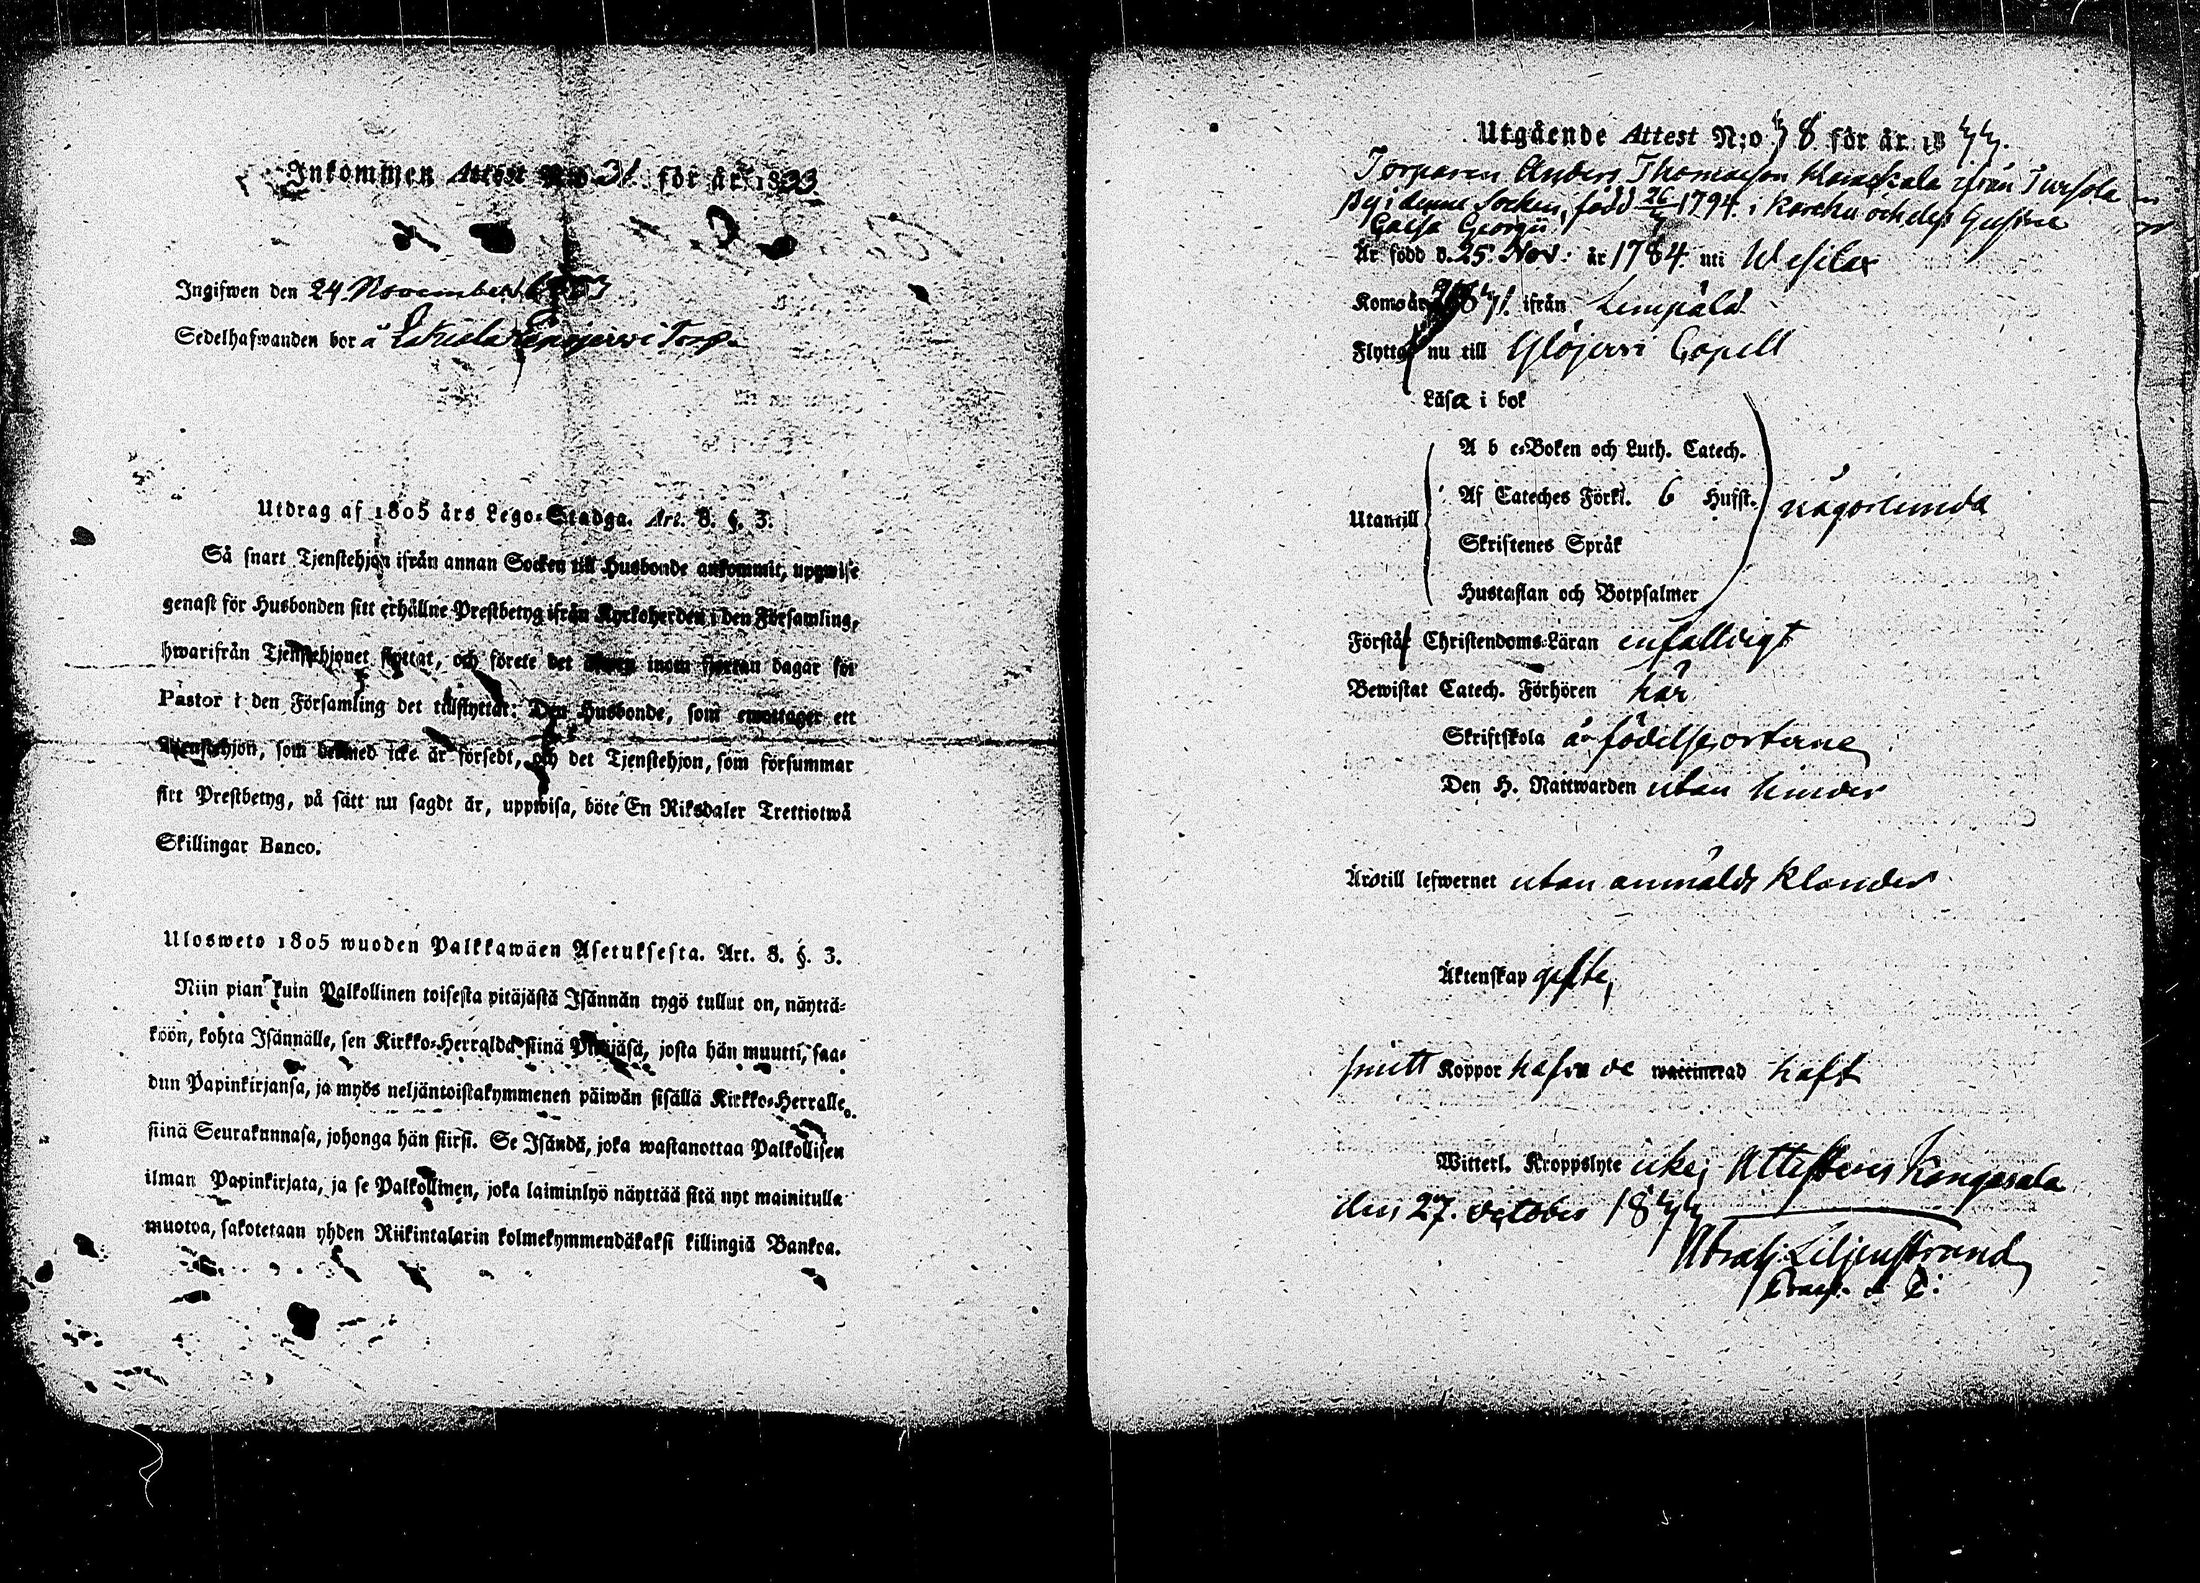 Inkommen Attest N:o 31. för år 1833
Ingifwen den 24. November 1833
Sedelhafwanden bor å Torp.
Utdrag af 1805 års Lego-Stadga. Art. 8. §. 3.
Så snart Tjenstehjon ifrån annan Socken till Husbonde ankommit, uppwise
genast för Husbonden sitt erhållne Prestbetyg ifrån Kyrkoherden i den Församling,
hwarifrån Tjenstehjonet flyttat, och förete det äfwen inom fjorton dagar för
Pastor i den Församling det tillflyttat: Den Husbonde, som emottager ett
Tjenstehjon, som dermed icke är försedt, och det Tjenstehjon, som försummar
sitt Prestbetyg, på sätt nu sagdt är, uppwisa, böte En Riksdaler Trettiotwå
Skillingar Banco.
Ulosweto 1805 wuoden Palkkawäen Asetuksesta. Art. 8. §. 3.
Niin pian kuin Palkollinen toisesta pitäjästä Isännän tygö tullut on, näyttä-
köön, kohta Isännälle, sen Kirkko-Herralda siinä Pitäjäsä, josta hän muutti, saa-
dun Papinkirjansa, ja myös neljäntoistakymmenen päiwän sisällä Kirkko-Herralle
siinä Seurakunnasa, johonga hän siirsi. Se Isändä, joka wastanottaa Palkollisen
ilman Papinkirjata, ja se Palkollinen, joka laiminlyö näyttää sitä nyt mainitulla
muotoa, sakotetaan yhden Riikintalarin kolmekymmendäkaksi killingiä Bankoa.
Utgående Attest N:o 48 för år 1844.
Torparen Anders Thomasson ifrån Tursola
By i denne Socken, född 26/4 1794 i Karcku och des Hustru
Caisa Georgii
Är född d. 25. Nov. år 1784. uti Wesilax
Kom år 1841. ifrån Lempälä
Flytta nu till Ylöjerwi Capell
Läsa i bok
A b c-Boken och Luth. Catech.
Af Cateches Förkl. 6 Hufst. någorlunda
Utantill
Skriftenes Språk
Hustaflan och Botpsalmer
Förstå Christendoms-Läran enfalldigt
Bewistat Catech. Förhören här
Skriftskola å födelseorterne
Den H. Nattwarden utan hinder
Äro till lefwernet utan anmäldt klander
Äktenskap gifte,
smitt Koppor hafva de waccinerad haft
Witterl. Kroppslyte icke; Attesteras Kangasala
den 27. October 1844
Abrah. Liljenstrand